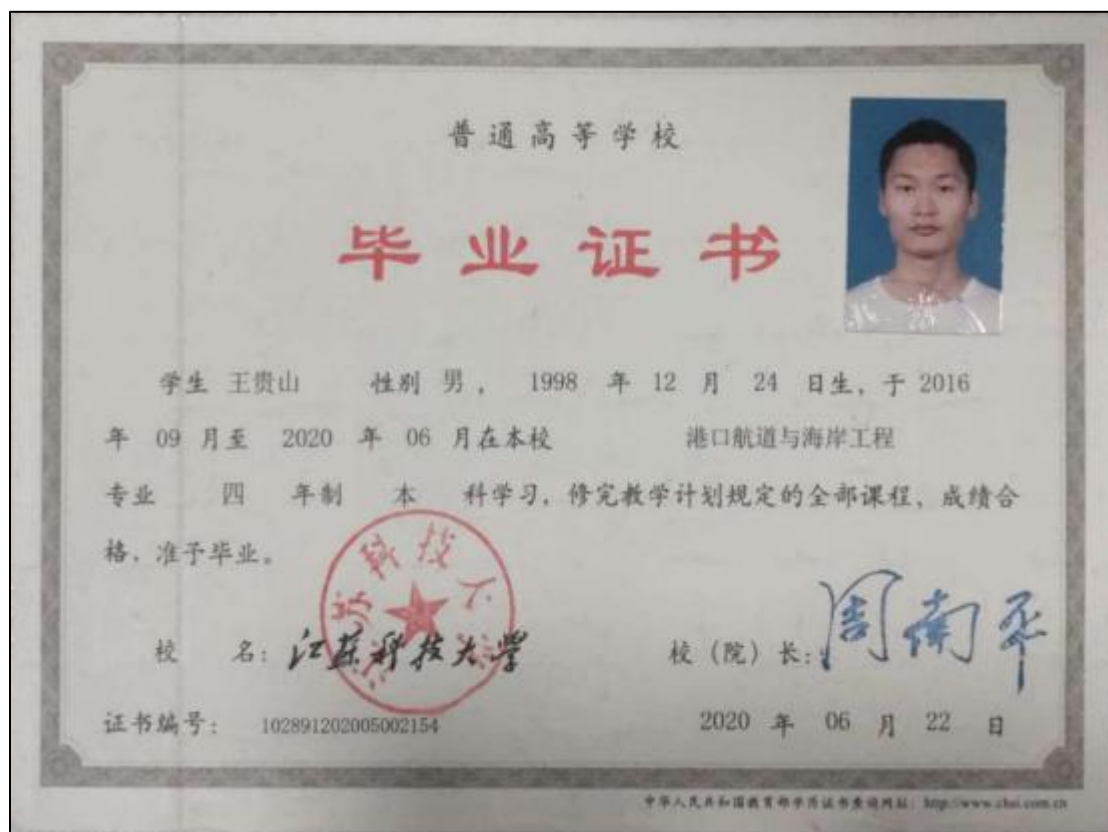 普通高等学校
毕业证书
学生 王贵山 性别 男， 1998 年 12 月 24 日生，于 2016
年 09 月至 2020 年 06 月在本校 港口航道与海岸工程
专业 四 年制 本 科学习，修完教学计划规定的全部课程，成绩合
格，准予毕业。
校 名：江苏科技大学
校（院）长：周南平
证书编号： 102891202005002154
2020 年 06 月 22 日
中华人民共和国教育部学历证书查询网址：http://www.chsi.com.cn